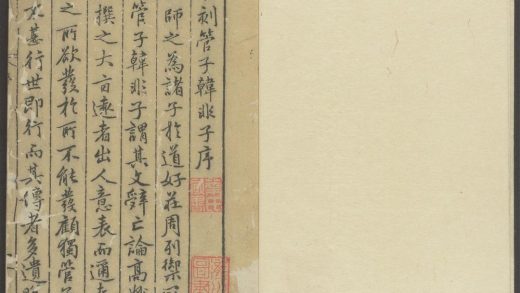 刻管子韓非子序
師之為諸子於道好莊周列禦
管子韓非子謂其文辭亡論高
撰之大旨遠者出人意表而邇
之所欲發於所不能發顧獨管
不甚行世即行而其傳者多遺